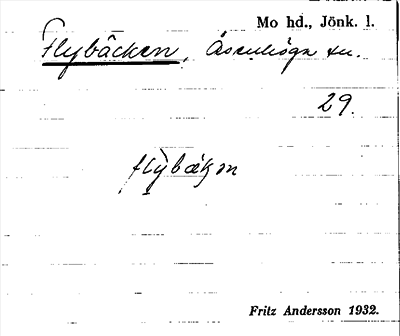 Mo hd., Jönk. l.
Flybäcken, Åsenhöga sn.
29.
flỳbäkən
Fritz Andersson 1932.